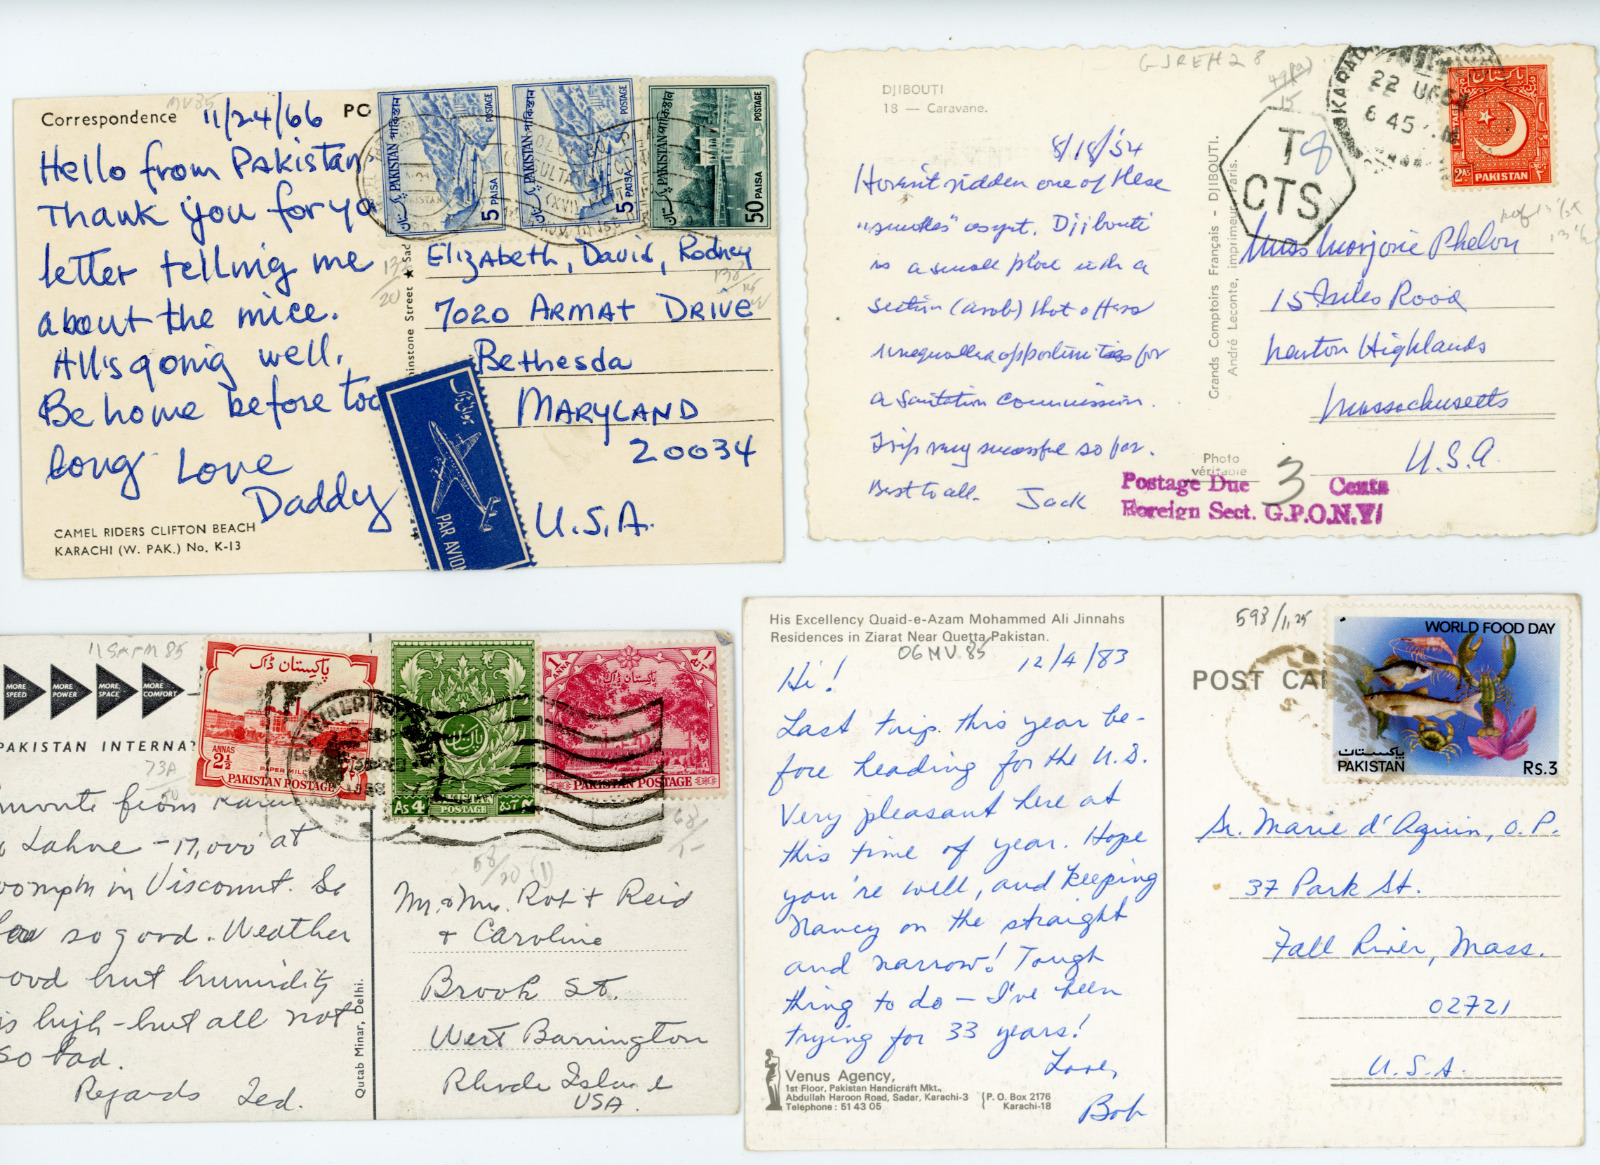 MV85
Correspondence
11/24/66
PO
Hello from Pakistan
Thank you for yo
letter telling me
about the mice.
All's going well.
Be home before too
long Love
Daddy
CAMEL RIDERS CLIFTON BEACH
KARACHI (W. PAK.) No. K-13
PAKISTAN
POSTAGE
5 PAISA
PAKISTAN
POSTAGE
5 PAISA
PAKISTAN
POSTAGE
50 PAISA
Elizabeth, David, Rodney
7020 ARMAT DRIVE
Bethesda
MARYLAND
20034
U.S.A.
PAR AVION
DJIBOUTI
18 — Caravane.
8/18/54
Haven't ridden one of these
as yet. Djibouti
is a small place with a
section (arab) that offers
unequalled opportunities for
a sanitation commission.
Trip very successful so far.
Best to all. Jack
Grands Comptoirs Français - DJIBOUTI.
André Leconte, imprimeur, Paris.
Photo
véritable
T 8
CTS
22
6 45
POSTAGE
2 As
PAKISTAN
Miss Marjorie Phelon
15 Road
Newton Highlands
Massachusetts
U.S.A.
Postage Due 3 Cents
Foreign Sect. G.P.O.N.Y.
MORE SPEED
MORE POWER
MORE SPACE
MORE COMFORT
PAKISTAN INTERNA
Lahore - 17,000' at
mph in Viscount. So
so good. Weather
ood but humidity
is high - but all not
so bad.
Regards Ted.
Qutab Minar, Delhi.
پاکستان ڈاک
ANNAS
2½
PAPER MILL
PAKISTAN POSTAGE
As 4
PAKISTAN
POSTAGE
1
ANNA
پاکستان ڈاک
PAKISTAN POSTAGE
Mr. & Mrs. Rob + Reid
+ Caroline
Brook St.
West Barrington
Rhode Island
USA.
His Excellency Quaid-e-Azam Mohammed Ali Jinnahs
Residences in Ziarat Near Quetta Pakistan.
06 MV 85
12/4/83
Hi!
Last trip this year be-
fore heading for the U.S.
Very pleasant here at
this time of year. Hope
you're well, and keeping
Nancy on the straight
and narrow! Tough
thing to do — I've been
trying for 33 years!
Love,
Bob
Venus Agency,
1st Floor, Pakistan Handicraft Mkt.,
Abdullah Haroon Road, Sadar, Karachi-3
Telephone: 51 43 05
P. O. Box 2176
Karachi-18
593/1,25
POST CA
WORLD FOOD DAY
پاکستان
PAKISTAN
Rs.3
Sr. Marie d'Aquin, O.P.
37 Park St.
Fall River, Mass.
02721
U.S.A.